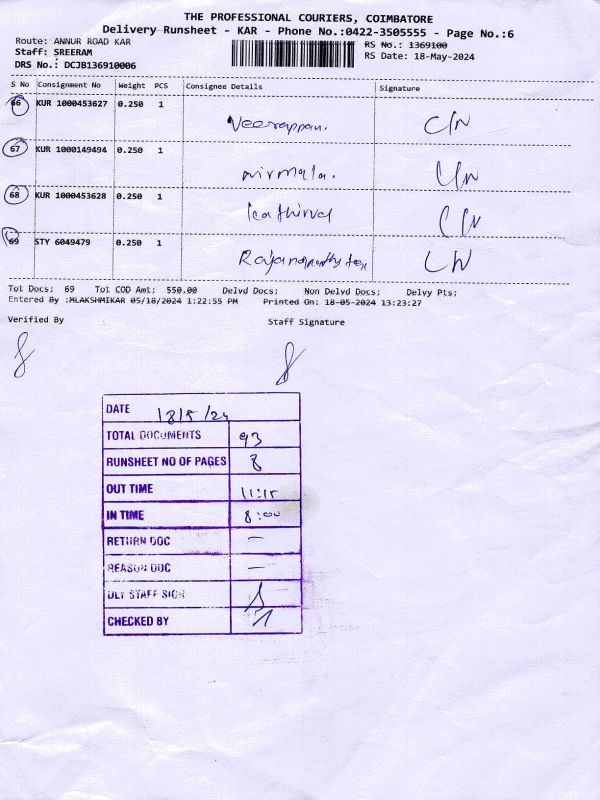 THE PROFESSIONAL COURIERS, COIMBATORE
Delivery Runsheet - KAR - Phone No.:0422-3505555 - Page No.:6
Route: ANNUR ROAD KAR
RS No.: 1369100
Staff: SREERAM
RS Date: 18-May-2024
DRS No.: DCJB136910006
S No Consignment No Weight PCS Consignee Details Signature
66 KUR 1000453627 0.250 1 Veerappan. C/N
67 KUR 1000149494 0.250 1 nirmala. C/N
68 KUR 1000453628 0.250 1 kathirvel C/N
69 STY 6049479 0.250 1 C/N
Tot Docs: 69 Tot COD Amt: 550.00 Delvd Docs: Non Delvd Docs: Delvy Pts:
Entered By :MLAKSHMIKAR 05/18/2024 1:22:55 PM Printed On: 18-05-2024 13:23:27
Verified By Staff Signature
DATE 18/5/24
TOTAL DOCUMENTS 93
RUNSHEET NO OF PAGES 8
OUT TIME 11:15
IN TIME 8:00
RETURN DOC —
REASON DOC —
DLY STAFF SIGN
CHECKED BY